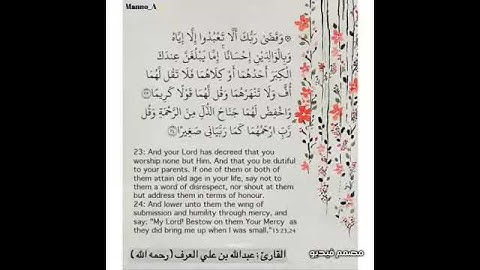 Manno_A
۞ وَقَضَىٰ رَبُّكَ أَلَّا تَعْبُدُوا إِلَّا إِيَّاهُ
وَبِالْوَالِدَيْنِ إِحْسَانًا ۚ إِمَّا يَبْلُغَنَّ عِندَكَ
الْكِبَرَ أَحَدُهُمَا أَوْ كِلَاهُمَا فَلَا تَقُل لَّهُمَا
أُفٍّ وَلَا تَنْهَرْهُمَا وَقُل لَّهُمَا قَوْلًا كَرِيمًا ٢٣
وَاخْفِضْ لَهُمَا جَنَاحَ الذُّلِّ مِنَ الرَّحْمَةِ وَقُل
رَّبِّ ارْحَمْهُمَا كَمَا رَبَّيَانِي صَغِيرًا ٢٤
23: And your Lord has decreed that you
worship none but Him. And that you be dutiful
to your parents. If one of them or both of
them attain old age in your life, say not to
them a word of disrespect, nor shout at them
but address them in terms of honour.
24: And lower unto them the wing of
submission and humility through mercy, and
say: "My Lord! Bestow on them Your Mercy as
they did bring me up when I was small,"15:23,24
القارئ : عبدالله بن علي العرف (رحمه الله)
مصمم فيديو